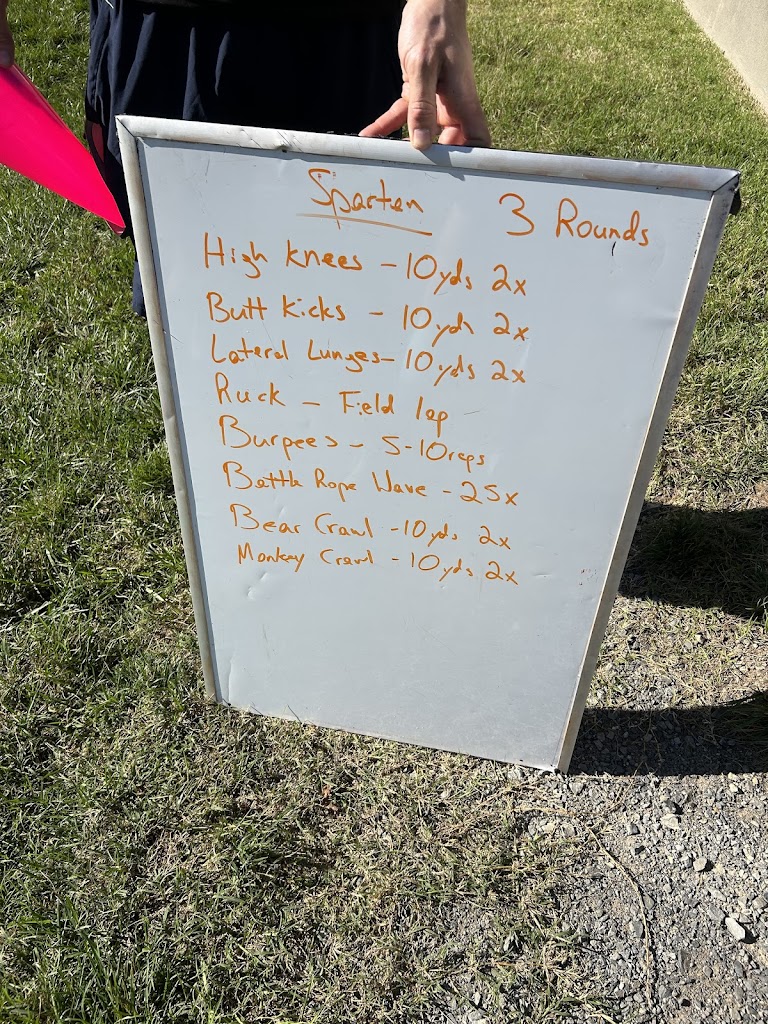 Spartan 3 Rounds
High knees - 10yds 2x
Butt Kicks - 10yds 2x
Lateral Lunges - 10yds 2x
Ruck - Field lap
Burpees - 5-10reps
Battle Rope Wave - 25x
Bear Crawl - 10yds 2x
Monkey Crawl - 10yds 2x